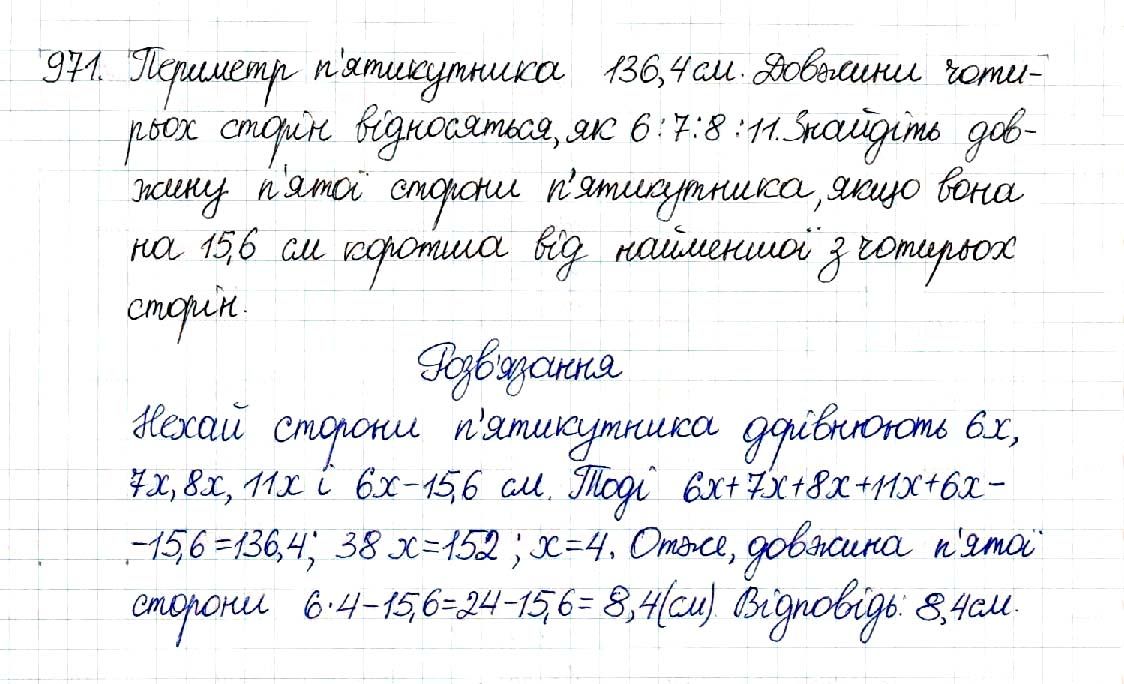 971. Периметр п'ятикутника 136,4 см. Довжини чоти-
рьох сторін відносяться, як 6:7:8:11. Знайдіть дов-
жину п'ятої сторони п'ятикутника, якщо вона
на 15,6 см коротша від найменшої з чотирьох
сторін.
Розв'язання
Нехай сторони п'ятикутника ддрівнюють 6x,
7x, 8x, 11x і 6x-15,6 см. Тоді 6x+7x+8x+11x+6x-
-15,6=136,4; 38x=152; x=4. Отже, довжина п'ятої
сторони 6·4-15,6=24-15,6=8,4(см). Відповідь: 8,4см.